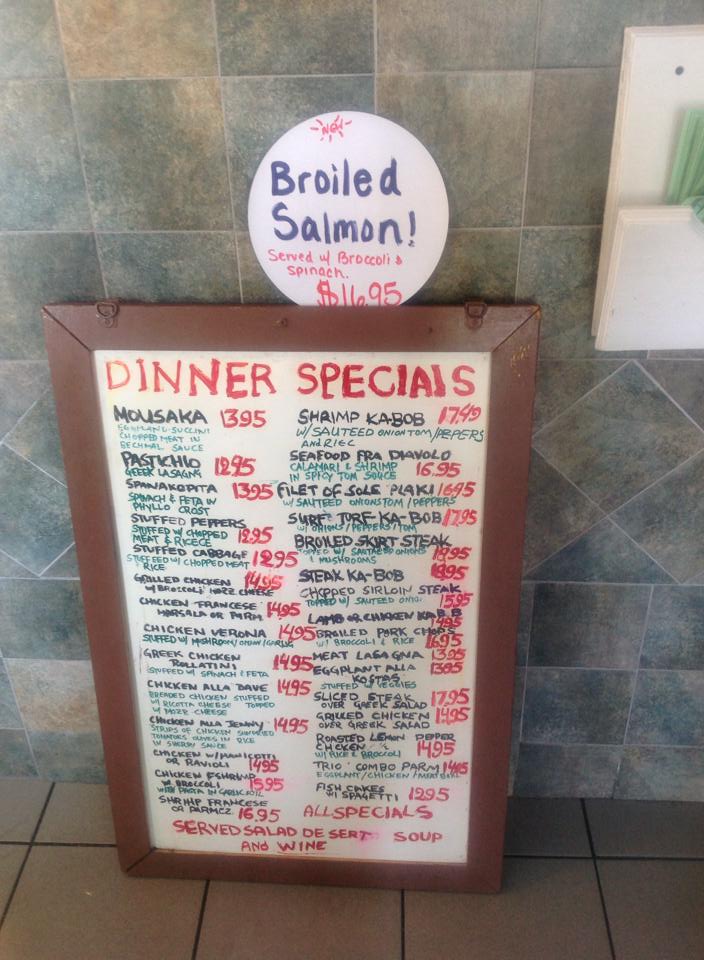 NEW
Broiled
Salmon!
Served w/ Broccoli &
Spinach.
$16.95
DINNER SPECIALS
MOUSAKA 1395
EGGPLAND SUCCINI
CHOPPED MEAT IN
BECHMAL SAUCE
PASTICHIO 1295
GREEK LASAGNA
SPANAKOPITA 1395
SPINACH & FETA IN
PHYLLO CROST
STUFFED PEPPERS
STUFFED W/ CHOPPED
MEAT & RICECE 1295
STUFFED CABBAGE 1295
STUFFEED W/ CHOPPED MEAT
RICE
GRILLED CHICKEN 1495
W/ BROCCOLI MOZZ CHEESE
CHICKEN FRANCESE
MARSALA OR PARM 1495
CHICKEN VERONA 1495
STUFFED W/ MUSHROOM/ONION/GARLIC
GREEK CHICKEN
ROLLATINI 1495
STUFFED W/ SPINACH & FETA
CHICKEN ALLA DAVE 1495
BREADED CHICKEN STUFFED
W/ RICOTTA CHEESE TOPPED
W/ MOZZ CHEESE
CHICKEN ALLA JENNY 1495
STRIPS OF CHICKEN
TOMATOES OLIVES IN RICE
W SHERRY SAUCE
CHICKEN W/MANICOTTI
OR RAVIOLI 1495
CHICKEN & SHRIMP
W BROCCOLI 1595
WITH PASTA IN GARLIC OIL
SHRIMP FRANCESE
OR PARMCZ 16.95
SHRIMP KA-BOB 17.49
W/ SAUTEED ONION TOM/PEPPERS
AND RICE
SEAFOOD FRA DIAVOLO
CALAMARI & SHRIMP 16.95
IN SPICY TOM SAUCE
FILET OF SOLE PLAKI 1695
W/ SAUTEED ONIONS TOM / PEPPERS
SURF TURF KA-BOB 17.95
W/ ONIONS/PEPPERS/TOM
BROILED SKIRT STEAK
TOPPED W/ SAUTEED ONIONS 1895
& MUSHROOMS
STEAK KA-BOB 1895
CHOPPED SIRLOIN STEAK
TOPPED W/ SAUTEED ONIO. 1595
LAMB OR CHIKKEN KAB.B
1495
BROILED PORK CHOPS
W/ BROCCOLI & RICE 1695
MEAT LASAGNA 1395
EGGPLANT ALLA 1395
KOSTAS
STUFFED W/ VEGGIES
SLICED STEAK 17.95
OVER GREEK SALAD
GRILLED CHICKEN 1495
OVER GREEK SALAD
ROASTED LEMON PEPPER
CHICKEN 1495
W/ RICE & BROCCOLI
TRIO COMBO PARM 1495
EGGPLANT/CHICKEN/MEATBALL
FISH CAKES
W/ SPAGETTI 1295
ALL SPECIALS
SERVED SALAD DESERT SOUP
AND WINE